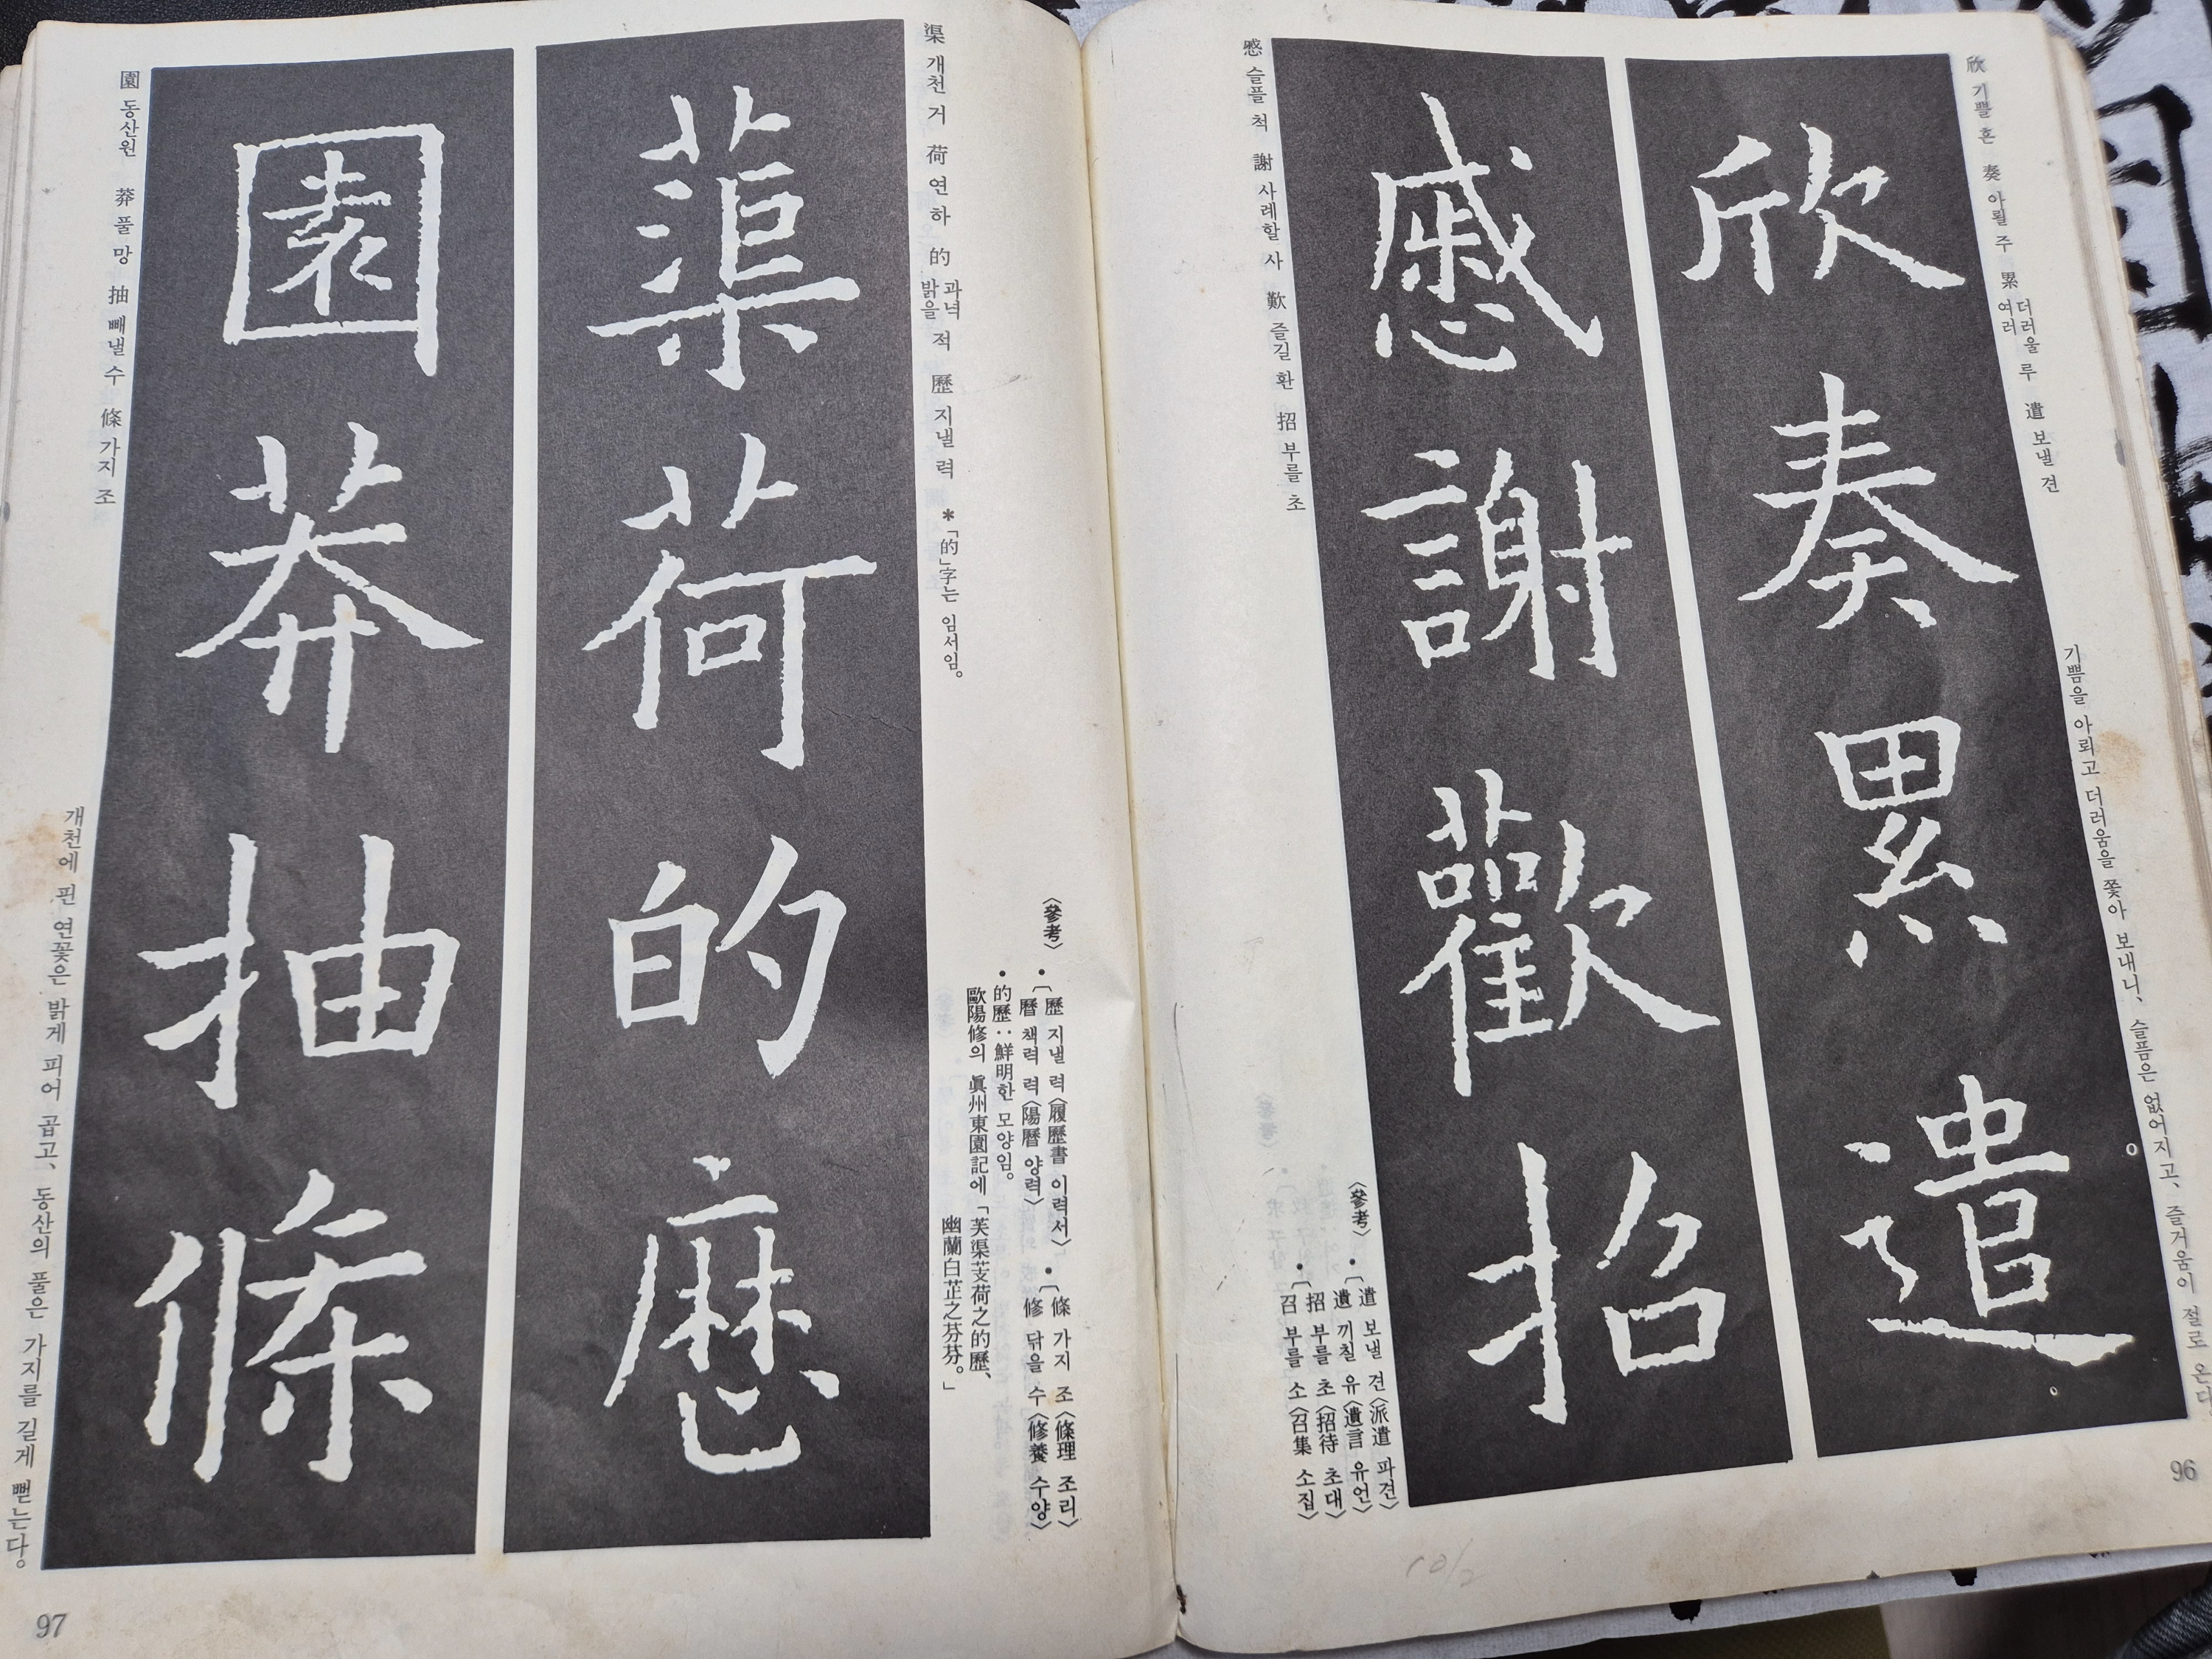 欣 기쁠 흔 奏 아뢸 주 累 더러울 여러 루 遣 보낼 견
欣奏累遣
기쁨을 아뢰고 더러움을 쫓아 보내니、 슬픔은 없어지고、 즐거움이 절로 온다
96
慼 슬플 척 謝 사례할 사 歡 즐길 환 招 부를 초
慼謝歡招
〈參考〉
• 〔遣 보낼 견〈派遣 파견〉
遺 끼칠 유〈遺言 유언〉
• 〔招 부를 초〈招待 초대〉
召 부를 소〈召集 소집〉
渠 개천 거 荷 연 하 的 과녁 밝을 적 歷 지낼 력 *「的」字는 임서임。
〈參考〉
• 〔歷 지낼 력〈履歷書 이력서〉
曆 책력 력〈陽曆 양력〉
• 〔條 가지 조〈條理 조리〉
修 닦을 수〈修養 수양〉
• 的歷:鮮明한 모양임。
歐陽修의 眞州東園記에 「芙渠芰荷之的歷、
幽蘭白芷之芬芬。」
蕖荷的歷
園莽抽條
園 동산 원 莽 풀 망 抽 빼낼 수 條 가지 조
개천에 핀 연꽃은 밝게 피어 곱고、 동산의 풀은 가지를 길게 뻗는다。
97